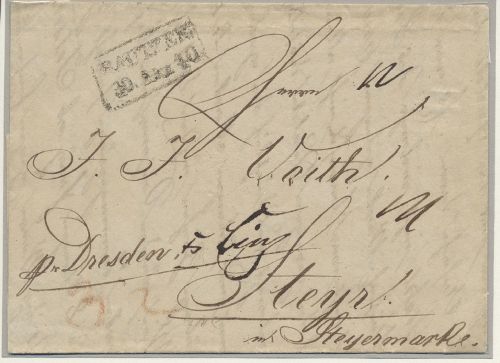 BAUTZEN
Herrn
J. J. Voith.
pr Dresden & Linz
Steyr.
in Steyermark.